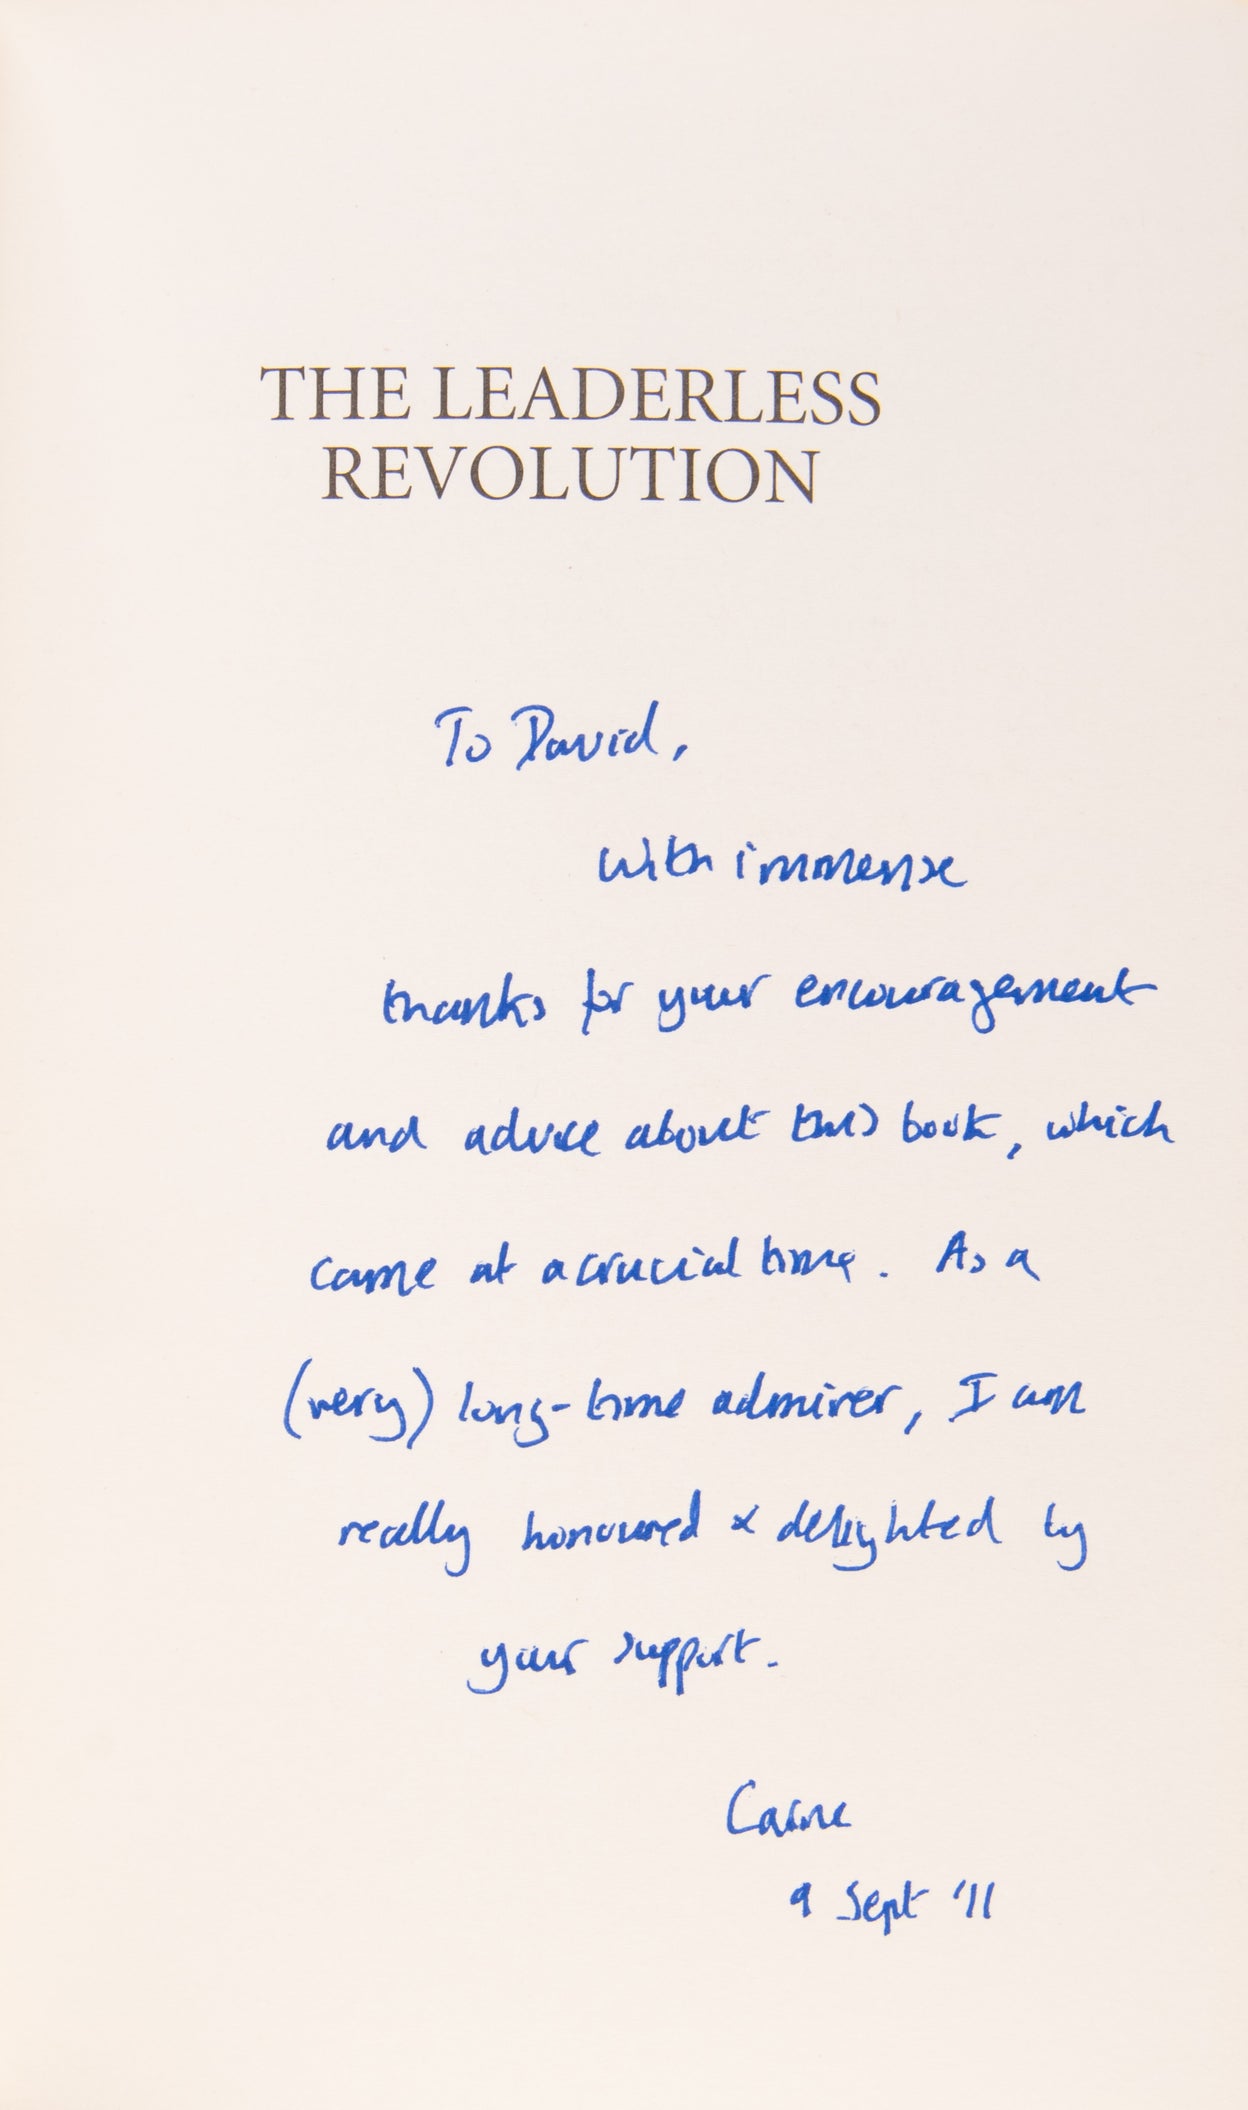 THE LEADERLESS
REVOLUTION
To David,
With immense
thanks for your encouragement
and advice about this book, which
came at a crucial time. As a
(very) long-time admirer, I am
really honoured & delighted by
your support.
Carne
9 Sept '11